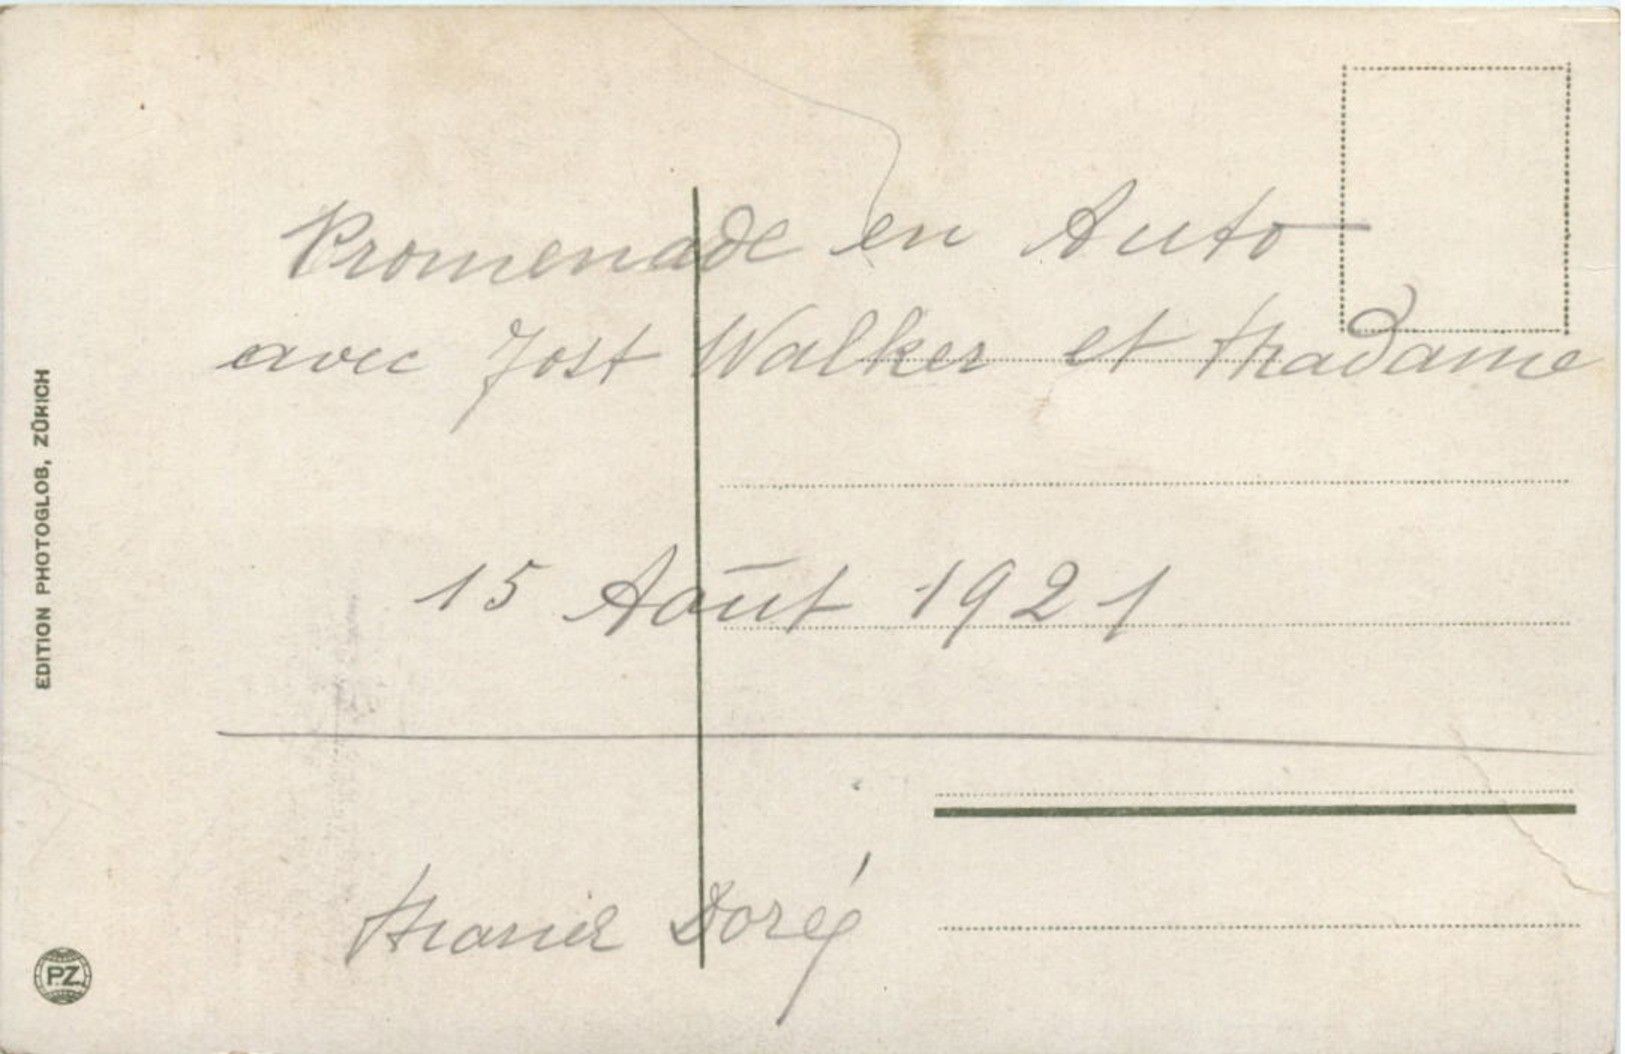 Promenade en Auto
avec Jost Walker et Madame
15 Août 1921
Doré
EDITION PHOTOGLOB, ZÜRICH
P.Z.